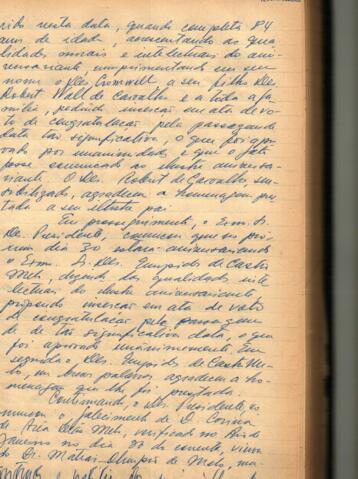 rido nesta data, quando completa 84
anos de idade, apresentando as qua
lidades morais e intelectuais do ani
versariante, cumprimentando em seu
nome o Des. Cromwell, a seu filho Des.
Robert Wall de Carvalho e a toda a fa
mília, pedindo inserção em ata de vo
to de congratulação pela passagem da
data tão significativa, o que foi apro
vado por unanimidade e que o fato
fosse comunicado ao ilustre aniver
sariante. O Des. Robert de Carvalho, sen
sibilizado, agradeceu a homenagem pres
tada a seu ilustre pai.
Em prosseguimento, o Exm. Sr.
Des. Presidente, comunicou que no pró
ximo dia 30 estará aniversariando
o Exm. Sr. Des. Eurípides de Castro
Melo, dizendo das qualidades inte
lectuais do ilustre aniversariante
propondo inserção em ata de voto
de congratulação pela passagem
de tão significativa data, o que
foi aprovado unanimemente. Em
seguida o Des. Eurípides de Castro Me
lo, em breves palavras agradeceu a ho
menagem que lhe foi prestada.
Continuando o Des. Presidente, co
municou o falecimento de D.
de Melo, verificado no Rio de
Janeiro no dia do corrente, viúva
do Dr. Matias Olímpio de Melo,